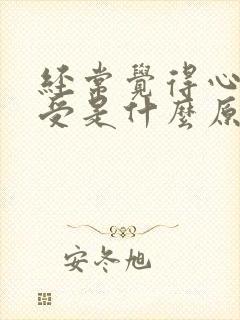 經常覺得心
受是什麼原
安冬旭